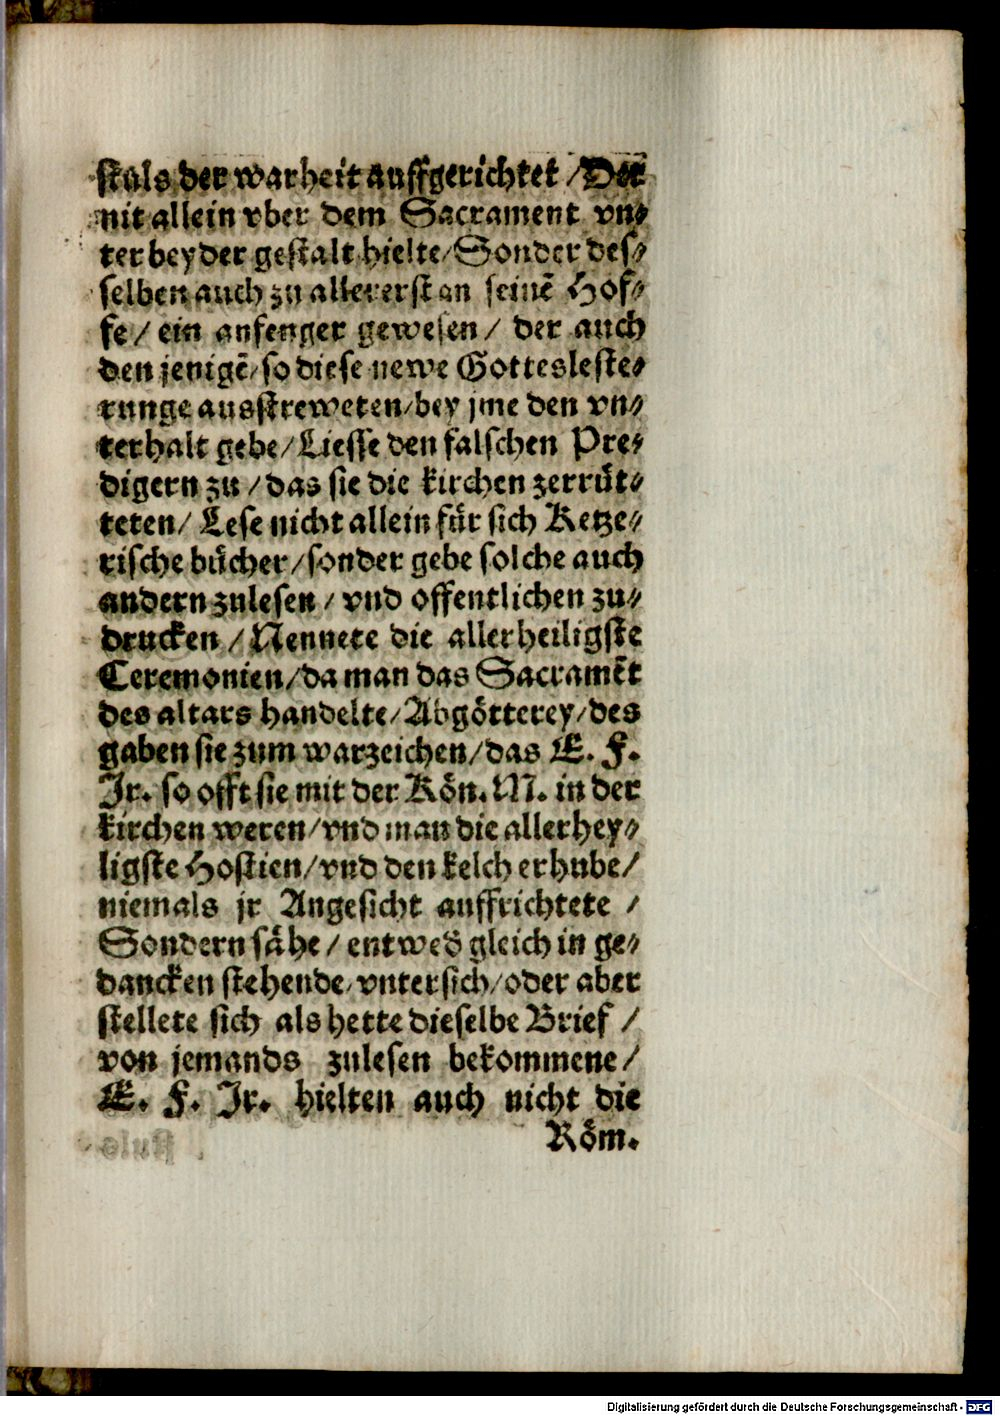 stuls der warheit auffgerichtet / Der
nit allein vber dem Sacrament vn⸗
ter beyder gestalt hielte / Sonder des⸗
selben auch zu allererst an seinē Hof⸗
fe / ein anfenger gewesen / der auch
den jenigē / so diese newe Gottesleste⸗
runge ausstreweten / bey jme den vn⸗
terhalt gebe / Liesse den falschen Pre⸗
digern zu / das sie die kirchen zerrüt⸗
teten / Lese nicht allein für sich Ketze⸗
rische bücher / sonder gebe solche auch
andern zulesen / vnd offentlichen zu⸗
drucken / Nennete die allerheiligste
Ceremonien / da man das Sacramēt
des altars handelte / Abgötterey / des
gaben sie zum warzeichen / das E. F.
Jr. so offt sie mit der Kön. M. in der
kirchen weren / vnd man die allerhey⸗
ligste Hostien / vnd den kelch erhube /
niemals jr Angesicht auffrichtete /
Sondern sähe / entwed gleich in ge⸗
dancken stehende / vnter sich / oder aber
stellete sich als hette dieselbe Brief /
von jemands zulesen bekommene /
E. F. Jr. hielten auch nicht die
Röm.
Digitalisierung gefördert durch die Deutsche Forschungsgemeinschaft - DFG